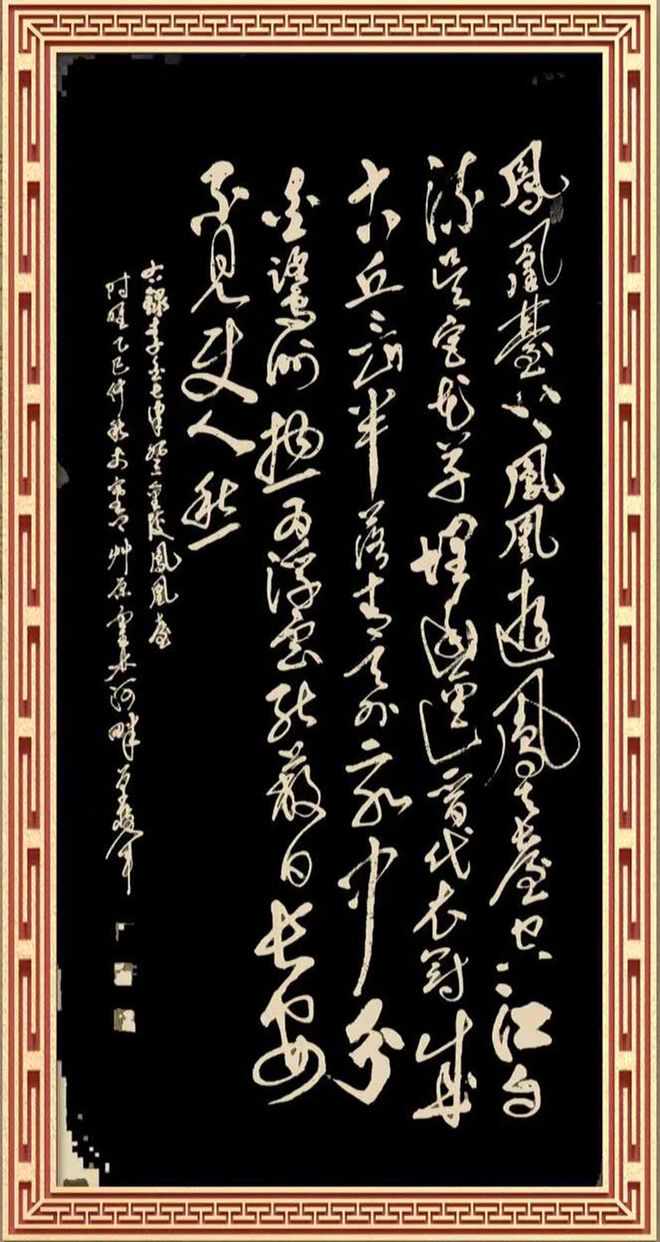 鳳凰臺上鳳凰遊鳳去臺空江自
流吳宮花草埋幽徑晉代衣冠成
古丘三山半落青天外二水中分
白鷺洲總為浮雲能蔽日長安
不見使人愁
右錄李白七律登金陵鳳凰臺
乙巳仲秋 艸原 河畔